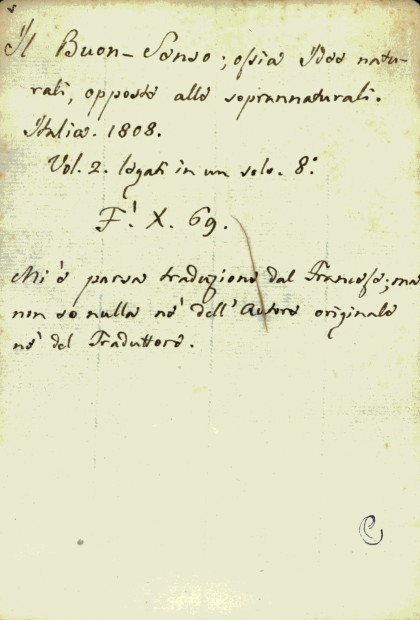 Il Buon-Senso; ossia Idee natu-
rali, opposte alle soprannaturali.
Italia. 1808.
Vol. 2. legati in un solo. 8.°
F. X. 69.
Mi è parsa traduzione dal Francese; ma
non so nulla nè dell' Autore originale
nè del Traduttore.